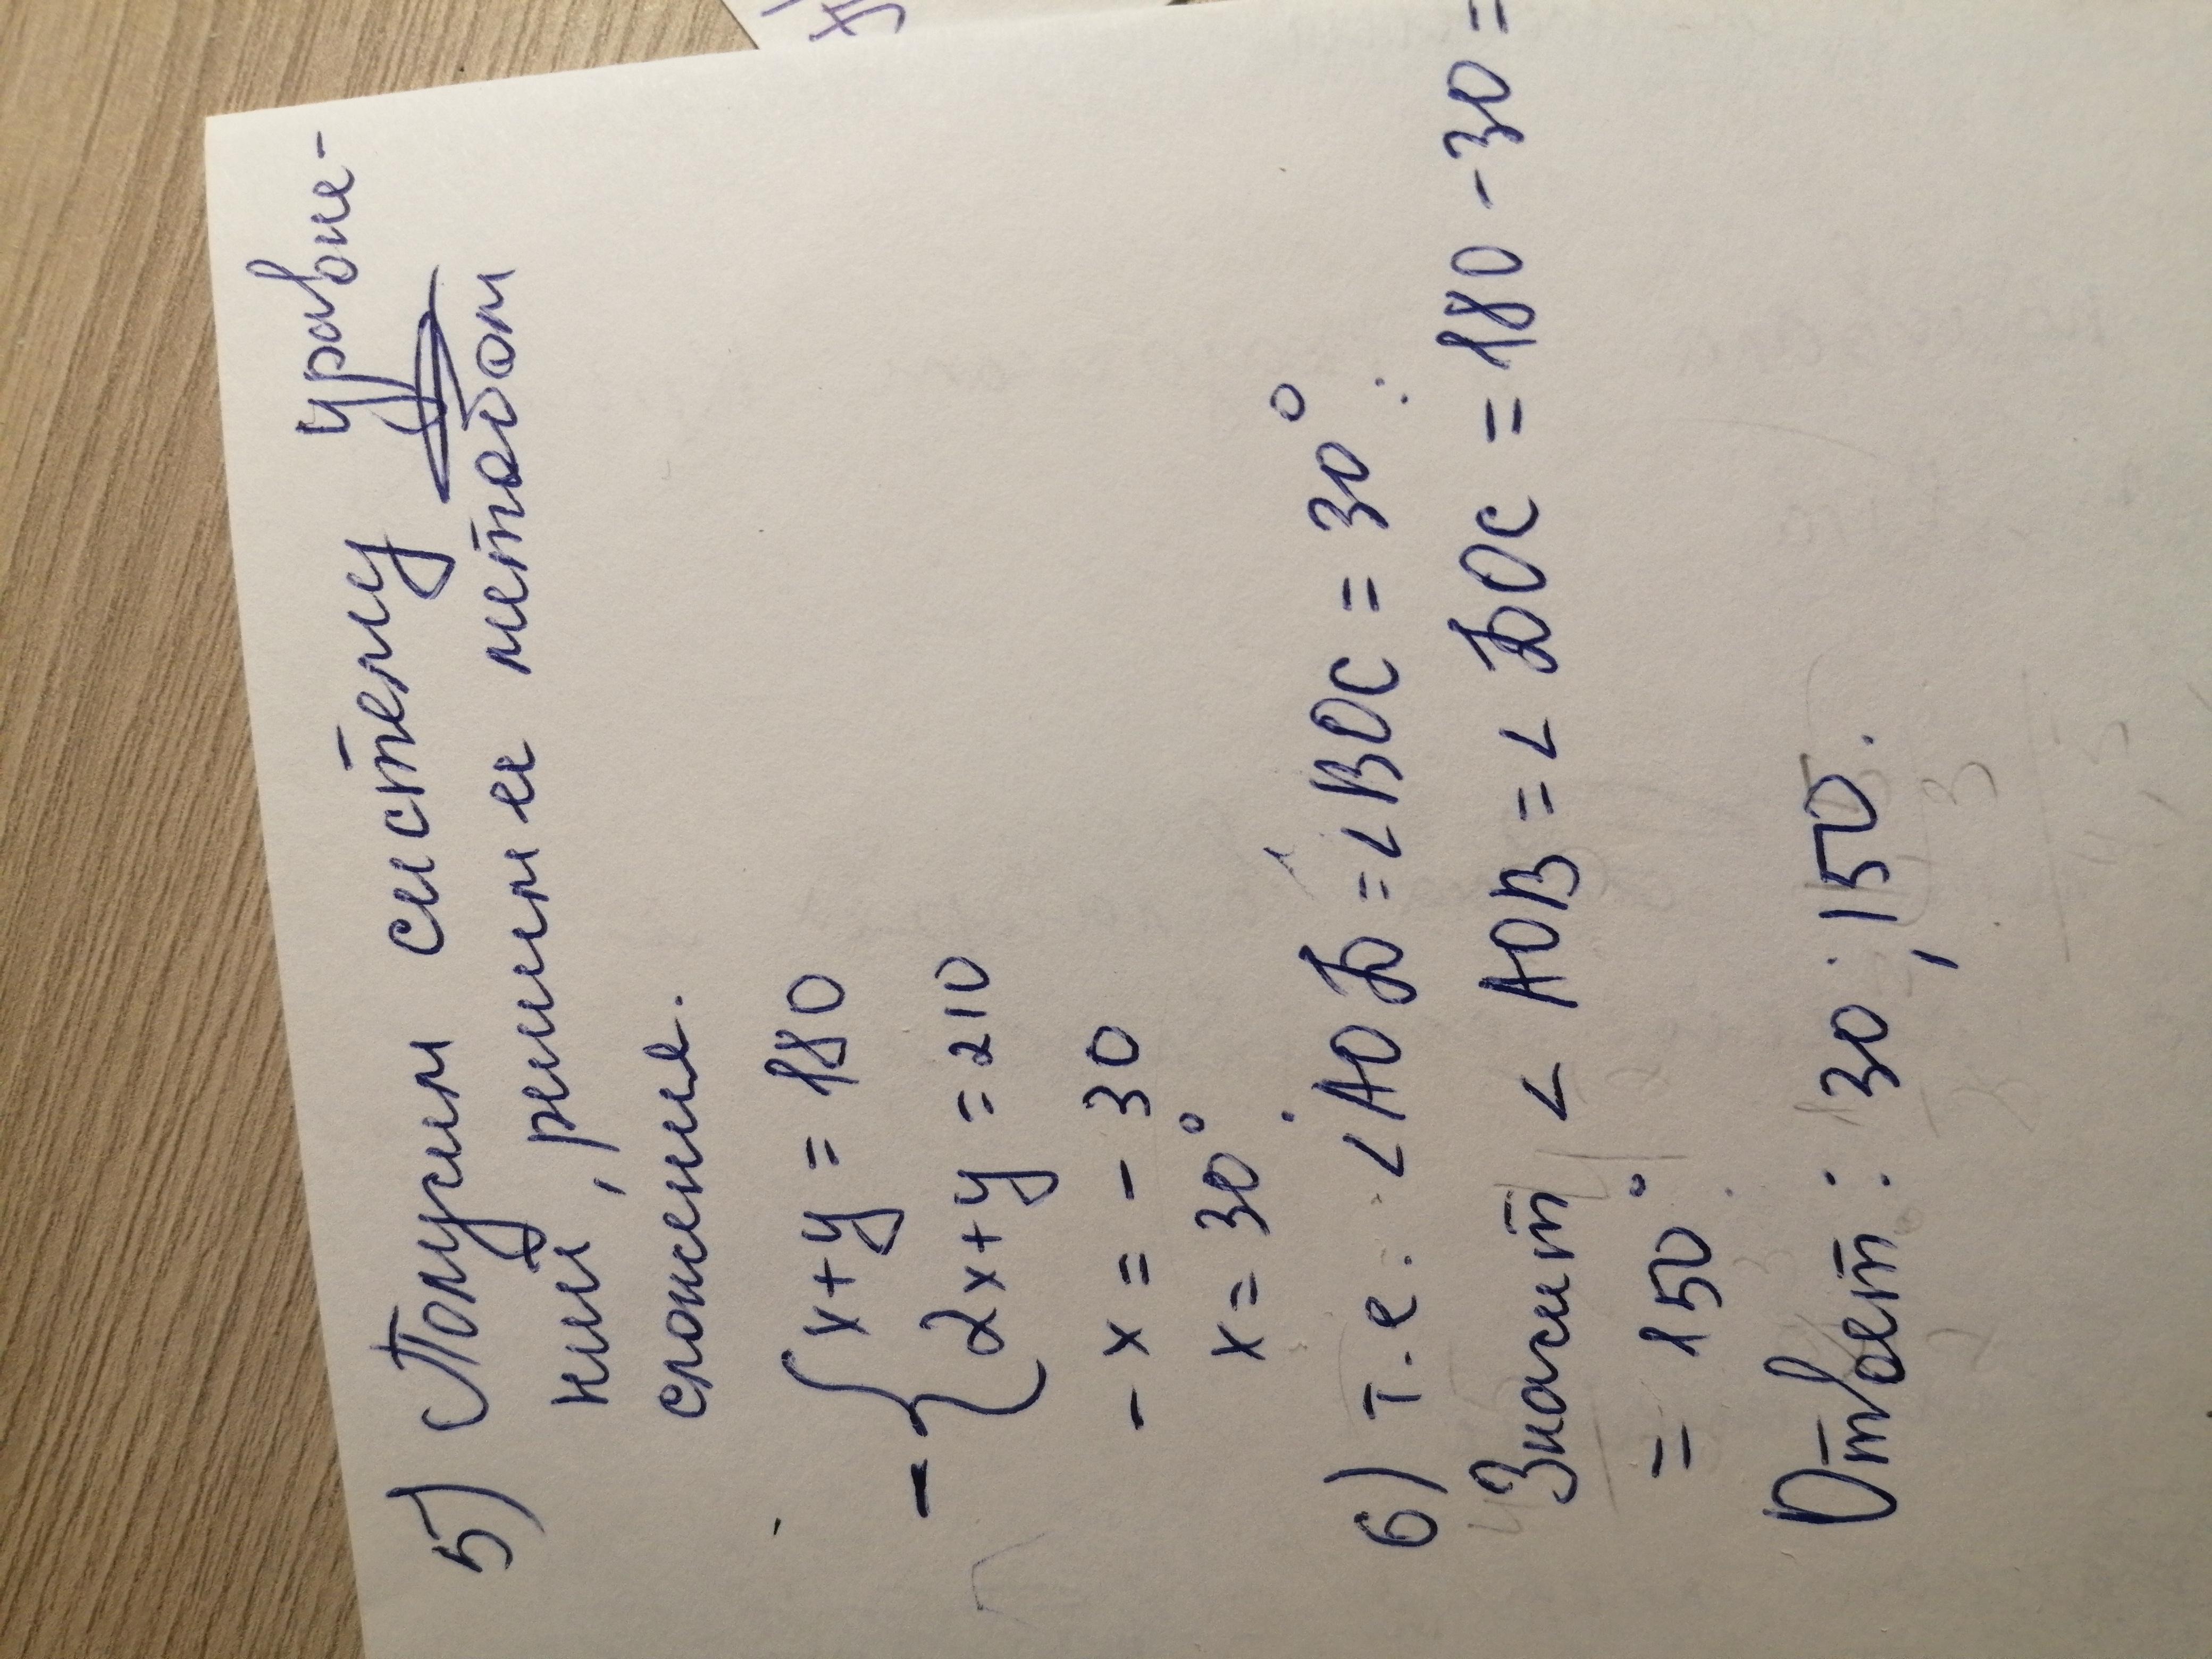 5) Получим систему уравне-
ний, решим ее методом
сложение.
- { x+y = 180
2x+y = 210
- x = - 30
x = 30°
6) т.е. ∠AOD = ∠BOC = 30°.
Значит ∠AOB = ∠DOC = 180 - 30 =
= 150°
Ответ: 30; 150.